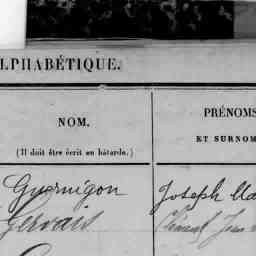 LPHABÉTIQUE.
NOM. PRÉNOMS
(Il doit être écrit en bâtarde.) ET SURNOM
Guernigon Joseph Ma
Gervais